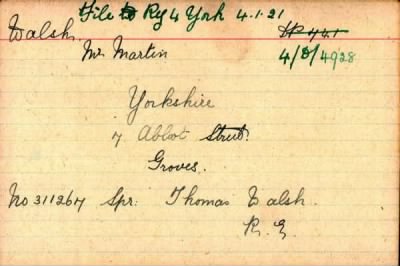 File to Reg 4 York 4.1.21
Walsh
Mr Martin
4/D/4928
Yorkshire
7 Abbot Street.
Groves.
No 311267 Spr: Thomas Walsh.
R.E.